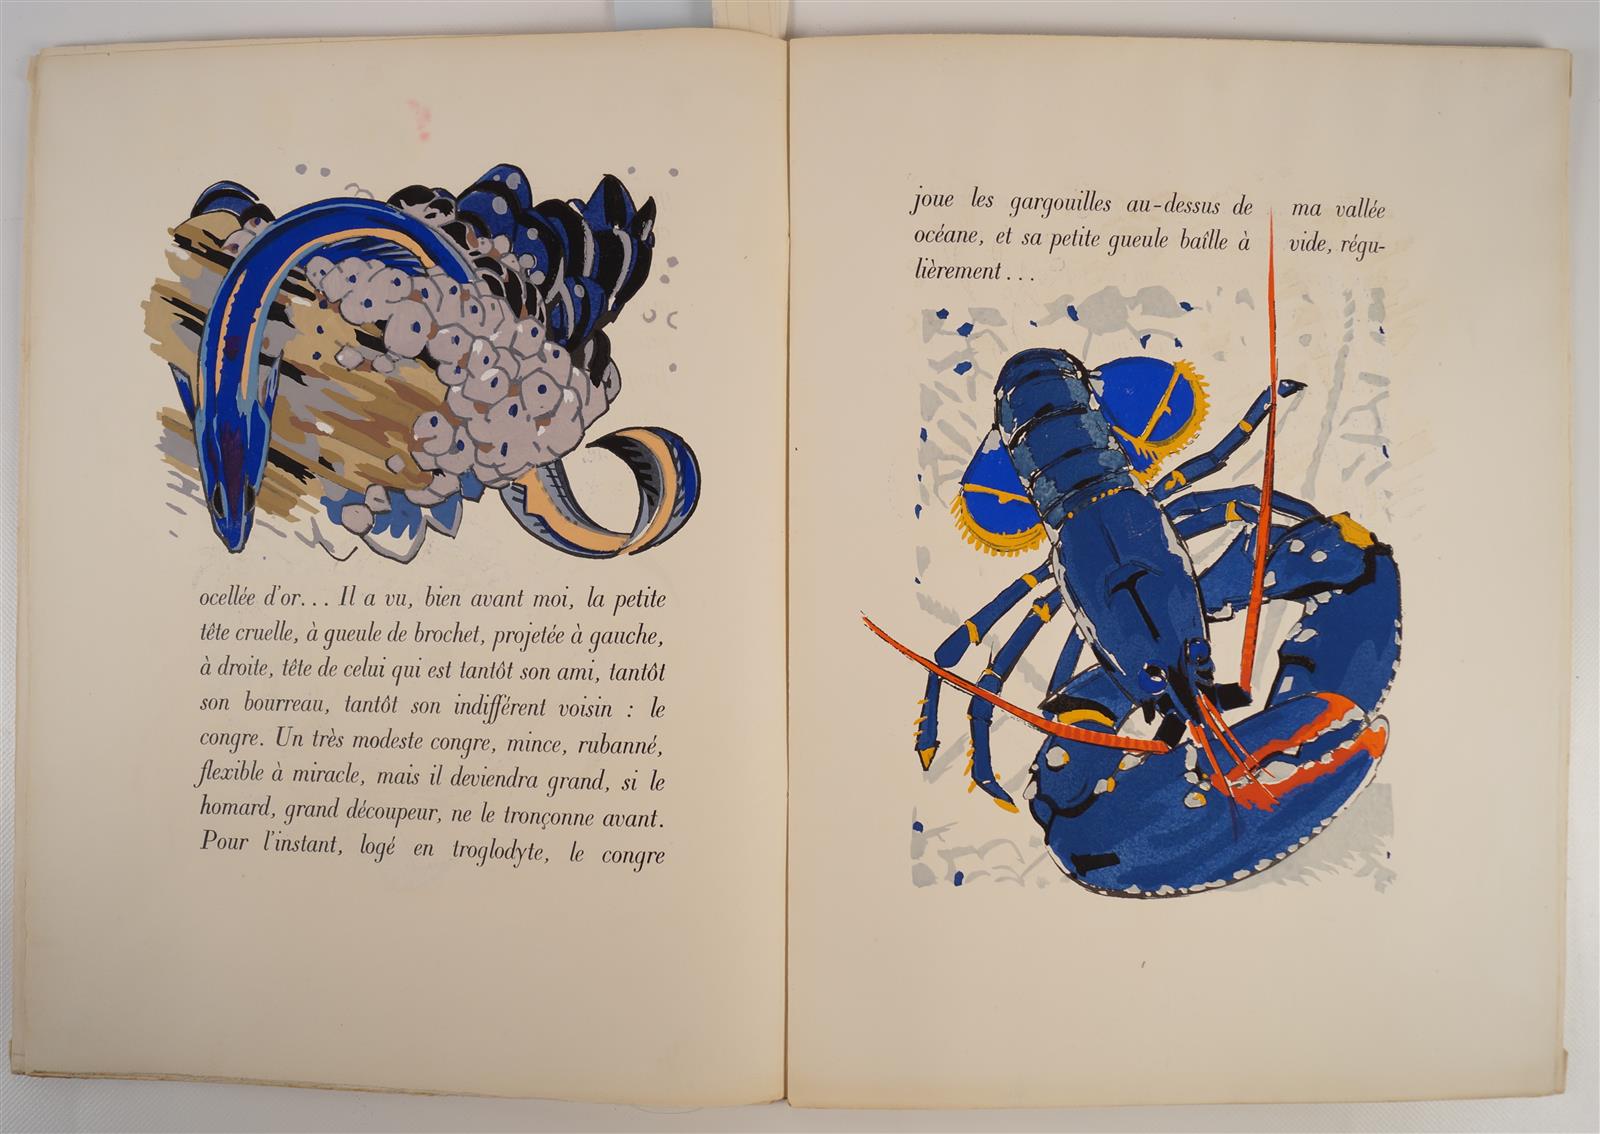 ocellée d'or... Il a vu, bien avant moi, la petite
tête cruelle, à gueule de brochet, projetée à gauche,
à droite, tête de celui qui est tantôt son ami, tantôt
son bourreau, tantôt son indifférent voisin : le
congre. Un très modeste congre, mince, rubanné,
flexible à miracle, mais il deviendra grand, si le
homard, grand découpeur, ne le tronçonne avant.
Pour l'instant, logé en troglodyte, le congre
joue les gargouilles au-dessus de ma vallée
océane, et sa petite gueule baîlle à vide, régu-
lièrement...